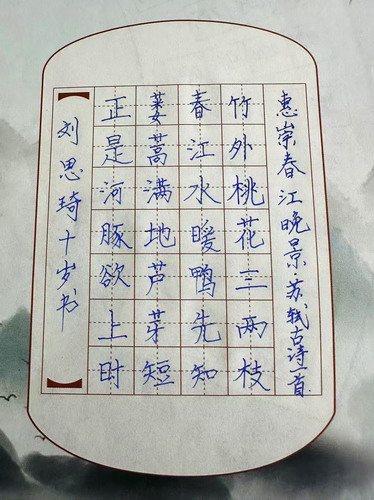 惠崇春江晚景·苏轼古诗一首
竹外桃花三两枝
春江水暖鸭先知
蒌蒿满地芦芽短
正是河豚欲上时
刘思琦十岁书